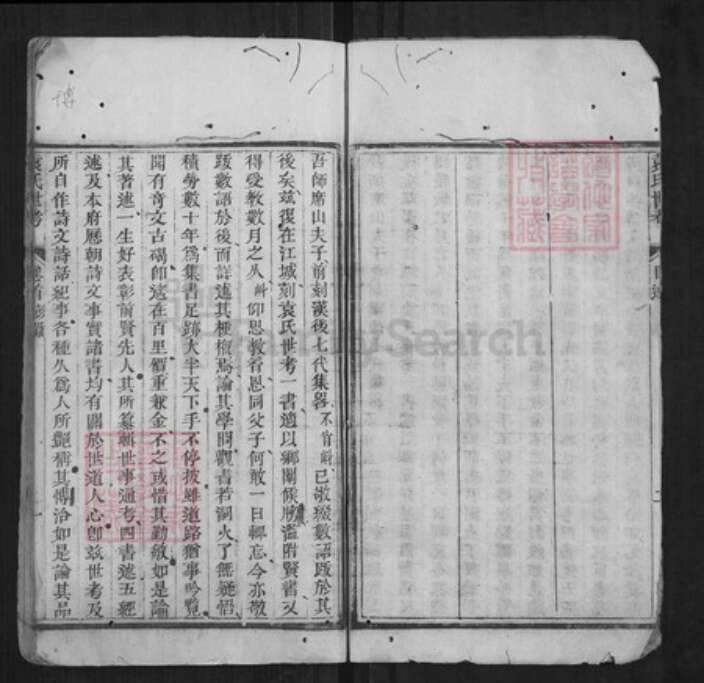 吾師席山夫子前刻漢後七代集畧不肖●已敬綴數語跋於其
後矣兹復在江城刻袁氏世考一書適以鄉闈倏勝濫附賢書又
得受教數月之久●仰思教育恩同父子何敢一日輙忘今亦敬
跋數語於後而詳述其梗槪焉論其學問觀書若洞火了無疑悟
積勞數十年爲集書足跡大半天下手不停披雖道路猶事吟覽
聞有奇文古碣卽遠在百里價重兼金不之或惜其勤敏如是論
其著述一生好表彰前賢先人其所纂輯世事通考四書述五經
述及本府歷朝詩文事實諸書均有關於世道人心卽兹世考及
所自作詩文詩話紀事各種久爲人所艷稱其博洽如是論其品
袁氏世考 卷首
袁氏世考
博
FamilySearch